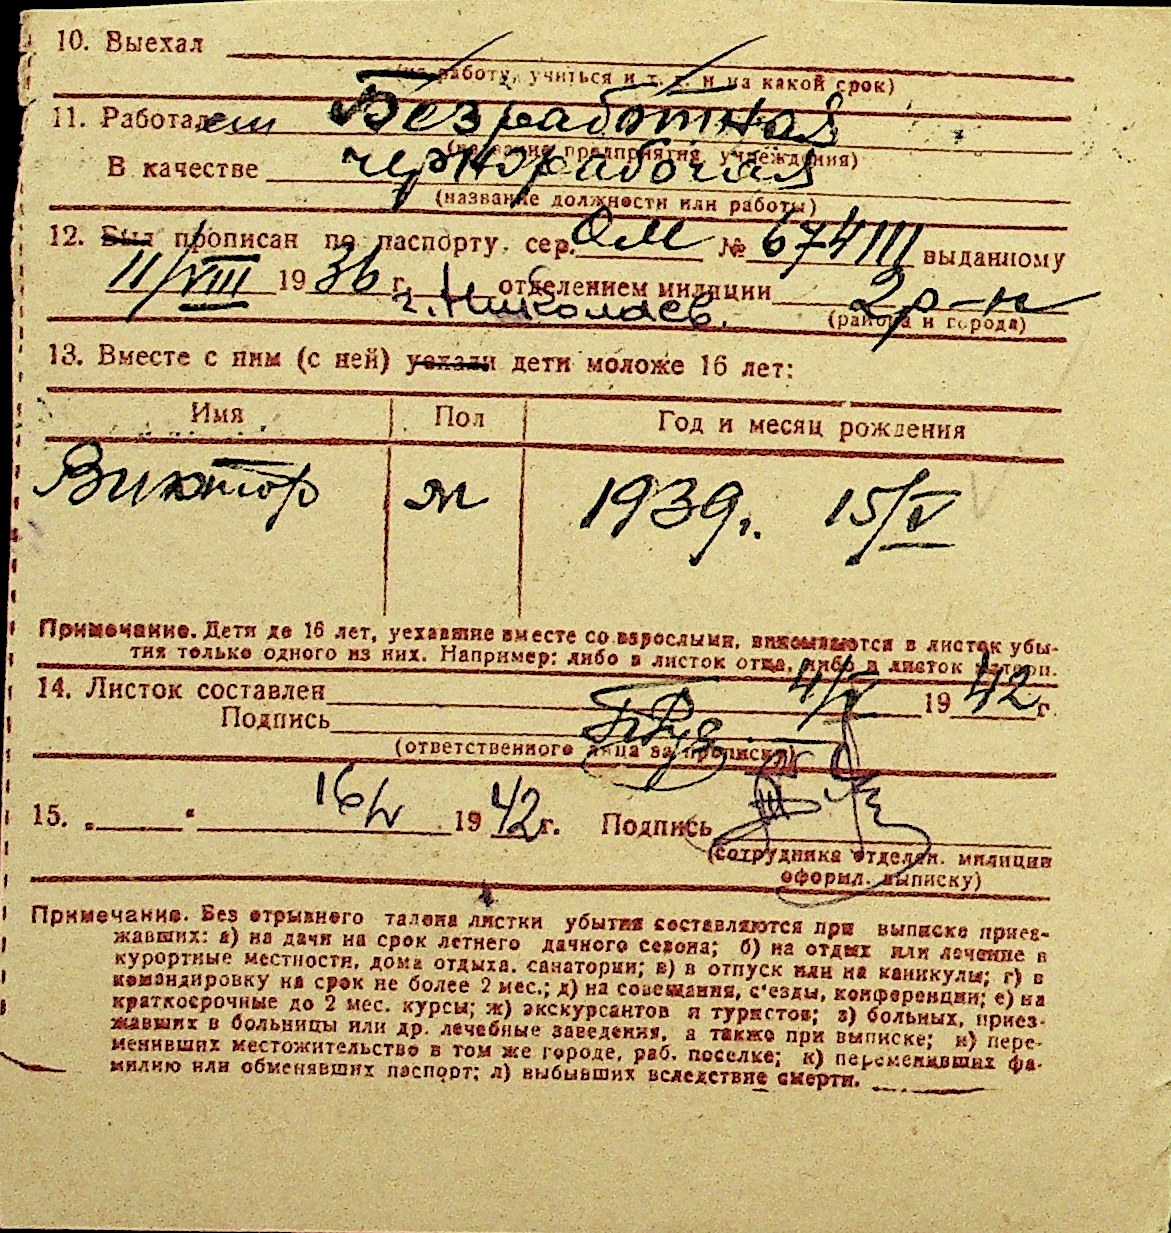 10. Выехал
(на работу, учиться и т. д. и на какой срок)
11. Работал Безработная
(название предприятия учреждения)
В качестве чернорабочая
(название должности или работы)
12. Был прописан по паспорту, сер. ОМ № 674111 выданному
11/VIII 1936 г. отделением милиции 2 р-н
г. Николаев. (района и города)
13. Вместе с ним (с ней) уехали дети моложе 16 лет:
Имя Пол Год и месяц рождения
Виктор м 1939 г. 15/V
Примечание. Дети до 16 лет, уехавшие вместе со взрослыми, вписываются в листок убы-
тия только одного из них. Например: либо в листок отца, либо в листок матери.
14. Листок составлен 4/V 1942 г.
Подпись
(ответственного лица за прописку)
15. „ “ 16/V 1942 г. Подпись
(сотрудника отделен. милиции
оформл. выписку)
Примечание. Без отрывного талона листки убытия составляются при выписке приез-
жавших: а) на дачи на срок летнего дачного сезона; б) на отдых или лечение в
курортные местности, дома отдыха, санатории; в) в отпуск или на каникулы; г) в
командировку на срок не более 2 мес.; д) на совещания, с'езды, конференции; е) на
краткосрочные до 2 мес. курсы; ж) экскурсантов и туристов; з) больных, приез-
жавших в больницы или др. лечебные заведения, а также при выписке; и) пере-
менивших местожительство в том же городе, раб. поселке; к) переменивших фа-
милию или обменявших паспорт; л) выбывших вследствие смерти.